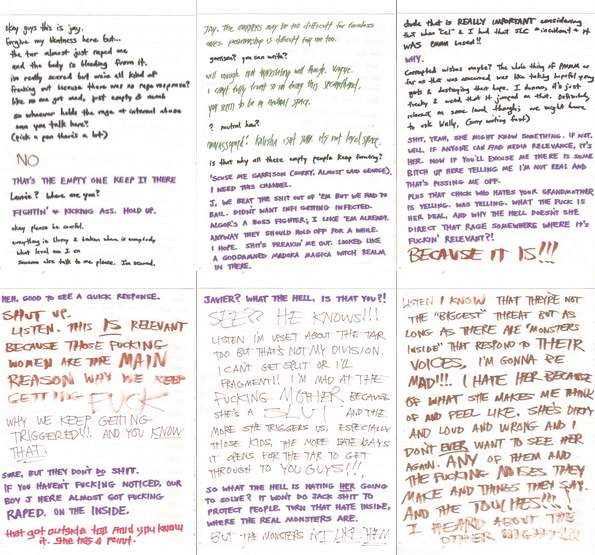 okay guys this is jay.
forgive my bluntness here but...
the tar almost just raped me
and the body is bleeding from it.
im really scared but we're all kind of
freaking out because there was no rage response?
like no one got mad, just empty & numb
so whoever holds the rage at internal abuse
can you talk here?
(pick a pen there's a lot)
NO
THAT'S THE EMPTY ONE KEEP IT THERE
Laurie? Where are you?
FIGHTIN' & KICKING ASS. HOLD UP.
okay please be careful.
everything is blurry & broken where is everybody
what level am I on
someone else talk to me please. I'm scared.
Jay. The may be too difficult for faceless
ones. penmanship is difficult for me too.
garrison? you can write?
well enough. not translating well though. Vague.
I can't fully front so im doing this secondhand.
you seem to be in neutral space.
? neutral how?
unassigned. isnt sure. it's not level space.
is that why all these empty people keep fronting?
'SCUSE ME GARRISON (SORRY, ALMOST SAID GEORGE).
I NEED THIS CHANNEL.
J, WE BEAT THE SHIT OUT OF 'EM BUT WE HAD TO
BAIL. DIDN'T WANT INFI GETTING INFECTED.
ALGOR'S A BOSS FIGHTER; I LIKE 'EM ALREADY.
ANYWAY THEY SHOULD HOLD OFF FOR A WHILE.
I HOPE. SHIT'S FREAKIN' ME OUT. LOOKED LIKE
A GODDAMNED MADOKA MAGICA WITCH REALM
IN THERE.
dude that is REALLY IMPORTANT considering
that when Cel & I had that SLC incident it
WAS PMMM based!!
WHY.
Corrupted wishes maybe? The whole thing of PMMM as
far as that was concerned was like taking hopeful young
girls & destroying their hope. I dunno, it's just
freaky & weird that it jumped on that. Definitely
relevant on some level though; we might have
to ask Wally, (sorry writing fast)
SHIT, YEAH, SHE MIGHT KNOW SOMETHING. IF NOT,
WELL, IF ANYONE CAN FIND MEDIA RELEVANCE, IT'S
HER. NOW IF YOU'LL EXCUSE ME THERE IS SOME
BITCH UP HERE TELLING ME I'M NOT REAL AND
THAT'S PISSING ME OFF.
PLUS THAT CHICK WHO HATES YOUR GRANDMOTHER
IS YELLING. WAS YELLING. WHAT THE FUCK IS
HER DEAL, AND WHY THE HELL DOESN'T SHE
DIRECT THAT RAGE SOMEWHERE WHERE IT'S
FUCKIN' RELEVANT?!
BECAUSE IT IS!!!
HEH, GOOD TO SEE A QUICK RESPONSE.
SHUT UP.
LISTEN. THIS IS RELEVANT
BECAUSE THOSE FUCKING
WOMEN ARE THE MAIN
REASON WHY WE KEEP
GETTING FUCK
WHY WE KEEP GETTING
TRIGGERED!!! AND YOU KNOW
THAT!
SURE, BUT THEY DON'T DO SHIT.
IF YOU HAVEN'T FUCKING NOTICED, OUR
BOY J HERE ALMOST GOT FUCKING
RAPED. ON THE INSIDE.
that got outside too and you know
it. she has a point.
JAVIER? WHAT THE HELL, IS THAT YOU?!
SEE?? HE KNOWS!!!
LISTEN IM UPSET ABOUT THE TAR
TOO BUT THAT'S NOT MY DIVISION.
I CAN'T GET SPLIT OR I'LL
FRAGMENT!! I'M MAD AT THE
FUCKING MOTHER BECAUSE
SHE'S A SLUT AND THE
MORE SHE TRIGGERS US, ESPECIALLY
THOSE KIDS, THE MORE
IT OPENS FOR THE TAR TO GET
THROUGH TO YOU GUYS!!!
SO WHAT THE HELL IS HATING HER GOING
TO SOLVE? IT WON'T DO JACK SHIT TO
PROTECT PEOPLE. TURN THAT HATE INSIDE,
WHERE THE REAL MONSTERS ARE.
BUT THE MONSTERS ACT LIKE THEM
LISTEN I KNOW THAT THEY'RE NOT
THE "BIGGEST" THREAT BUT AS
LONG AS THERE ARE "MONSTERS
INSIDE" THAT RESPOND TO THEIR
VOICES, I'M GONNA BE
MAD!!! I HATE HER BECAUSE
OF WHAT SHE MAKES ME THINK
OF AND FEEL LIKE. SHE'S DIRTY
AND LOUD AND WRONG AND I
DON'T EVER WANT TO SEE HER
AGAIN. ANY OF THEM AND
THE FUCKING NOISES THEY
MAKE AND THINGS THEY SAY.
AND THE TOUCHES!!!
I HEARD ABOUT THE
OTHER